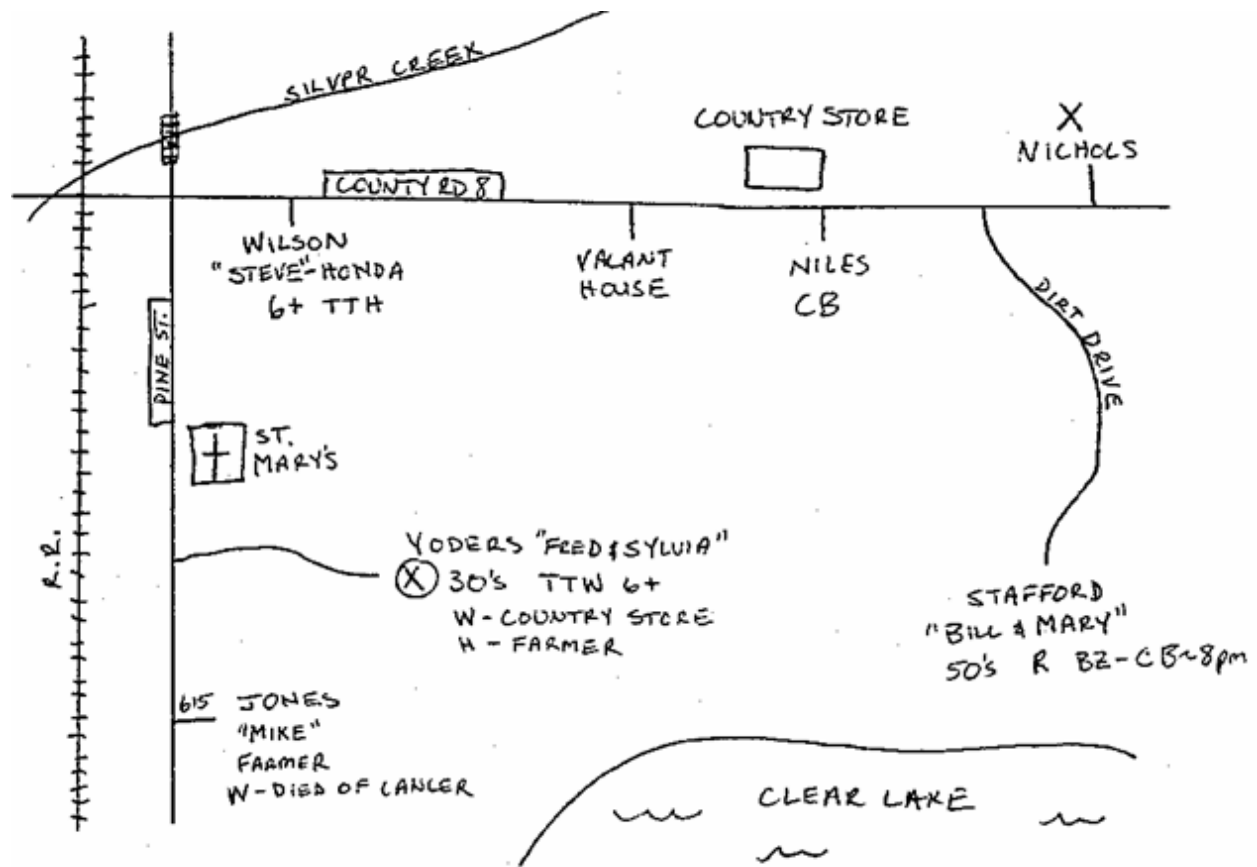 SILVER CREEK
COUNTRY STORE
X
NICHOLS
COUNTY RD 8
WILSON
"STEVE"-HONDA
6+ TTH
VACANT
HOUSE
NILES
CB
DIRT DRIVE
PINE ST.
ST.
MARY'S
R.R.
YODERS "FRED & SYLVIA"
X 30's TTW 6+
W-COUNTRY STORE
H-FARMER
STAFFORD
"BILL & MARY"
50's R BZ-CB~8pm
615 JONES
"MIKE"
FARMER
W-DIED OF CANCER
CLEAR LAKE